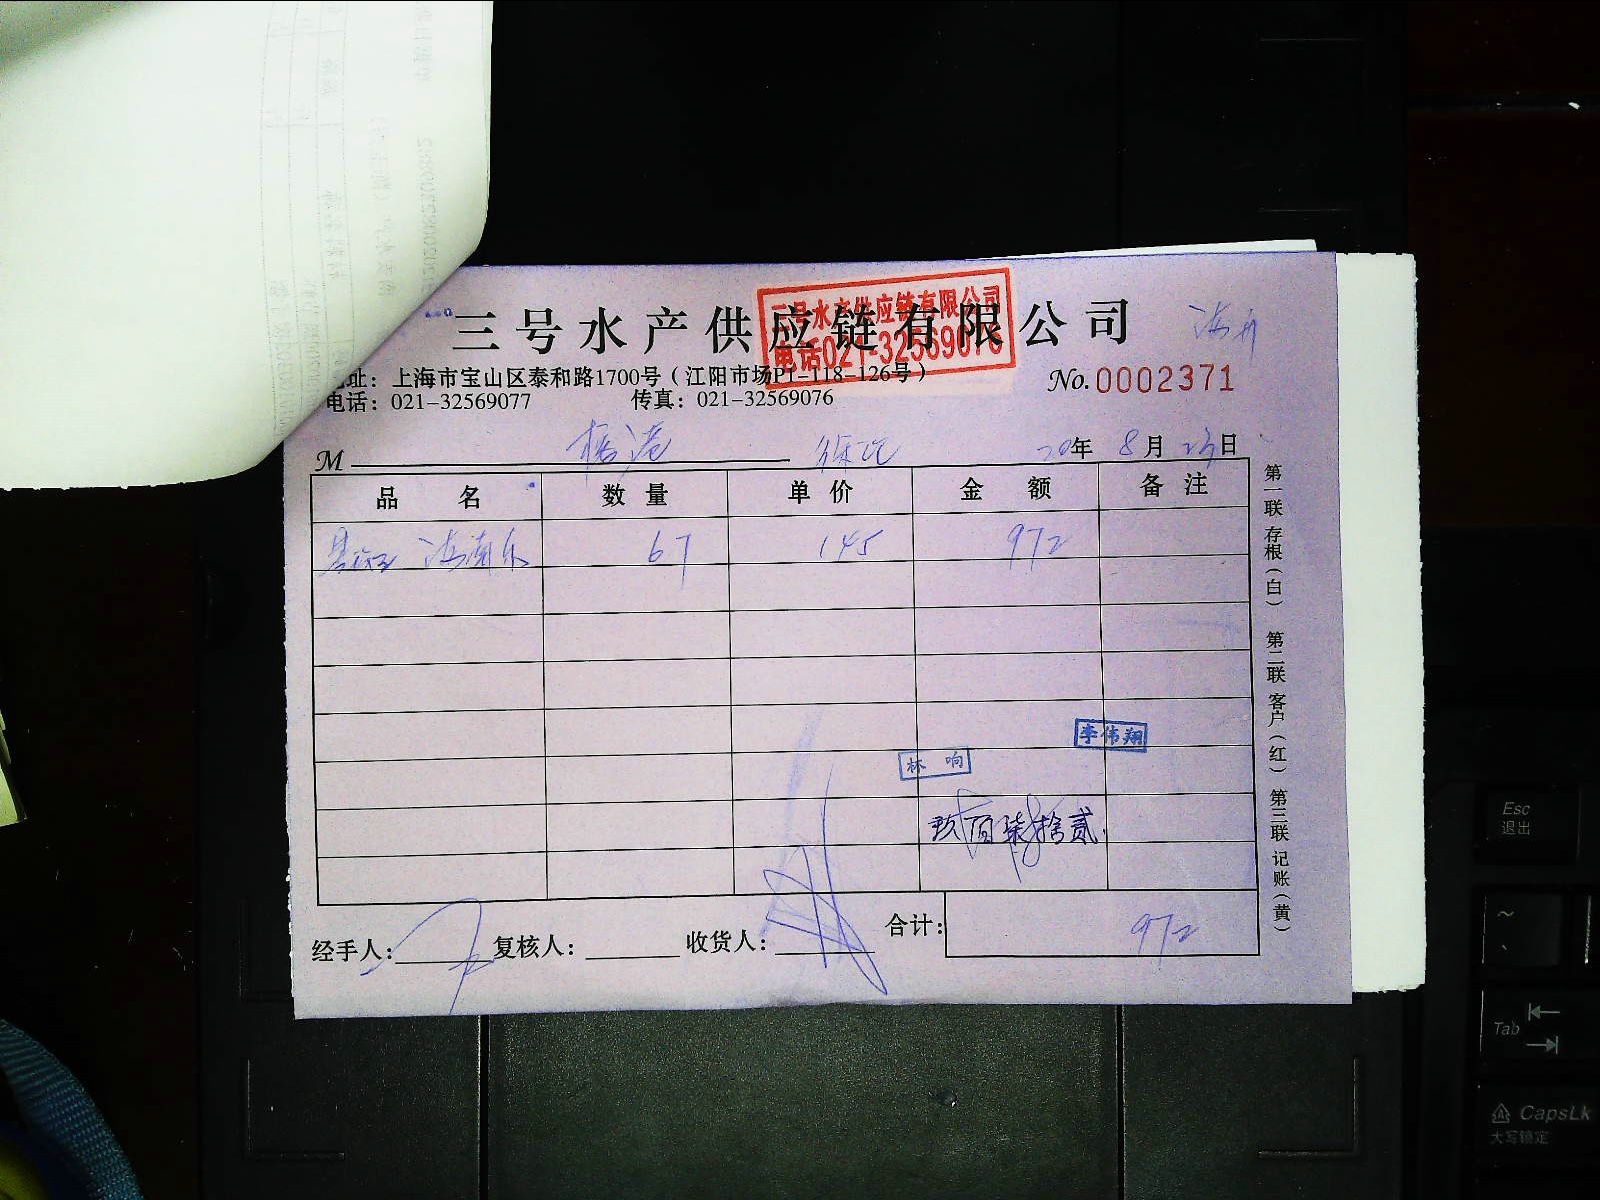 三号水产供应链有限公司
三号水产供应链有限公司
电话021-32569076
址：上海市宝山区泰和路1700号（江阳市场P1-118-126号）
No.0002371
电话：021-32569077 传真：021-32569076
M 20年 8月 日
品名 数量 单价 金额 备注
67 145 972
李伟翔
林响
玖佰柒拾贰
经手人： 复核人： 收货人： 合计： 972
第一联 存根（白） 第二联 客户（红） 第三联 记账（黄）
Esc
退出
~
Tab
CapsLk
大写锁定